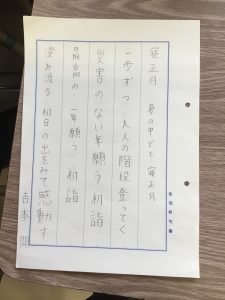 寝正月 夢の中でも 寝正月
一歩ずつ 大人の階段登ってく
災害のない年願う 初詣
最古の 一年願う 初詣
澄み渡る 初日の出をみて感動す
吉本